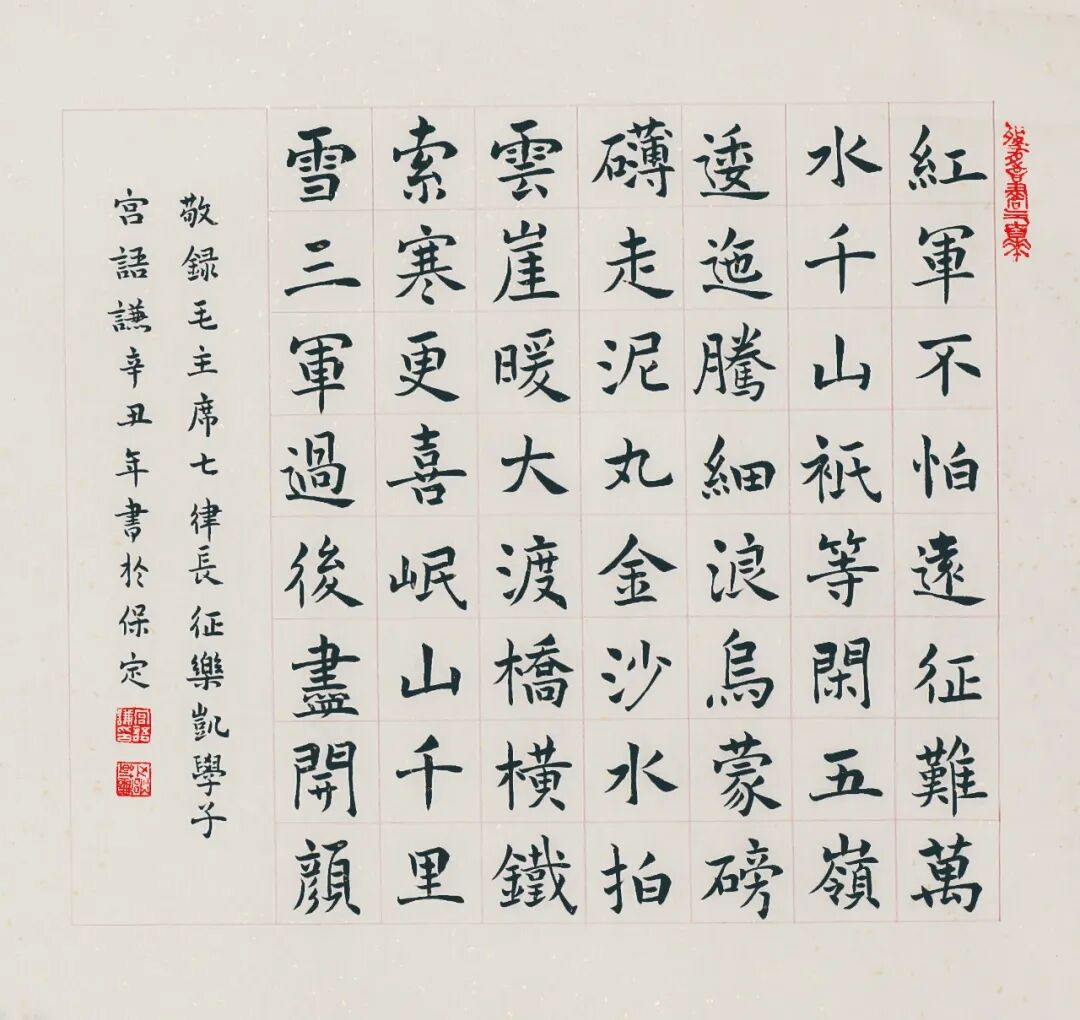 紅軍不怕遠征難萬
水千山衹等閑五嶺
逶迤騰細浪烏蒙磅
礴走泥丸金沙水拍
雲崖暖大渡橋横鐵
索寒更喜岷山千里
雪三軍過後盡開顔
敬録毛主席七律長征樂凱學子
宫語謙辛丑年書於保定
宫語謙印